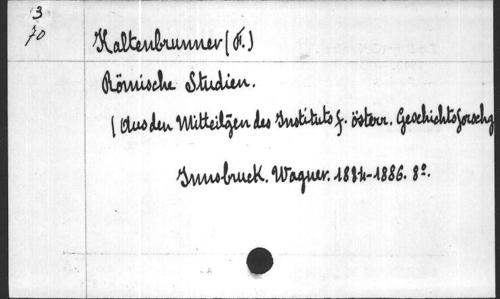 3
70
Kaltenbrunner (F.)
Römische Studien.
(Aus den Mitteilgen des Instituts f. österr. Geschichtsforschg
Innsbruck. Wagner. 1884-1886. 8º.